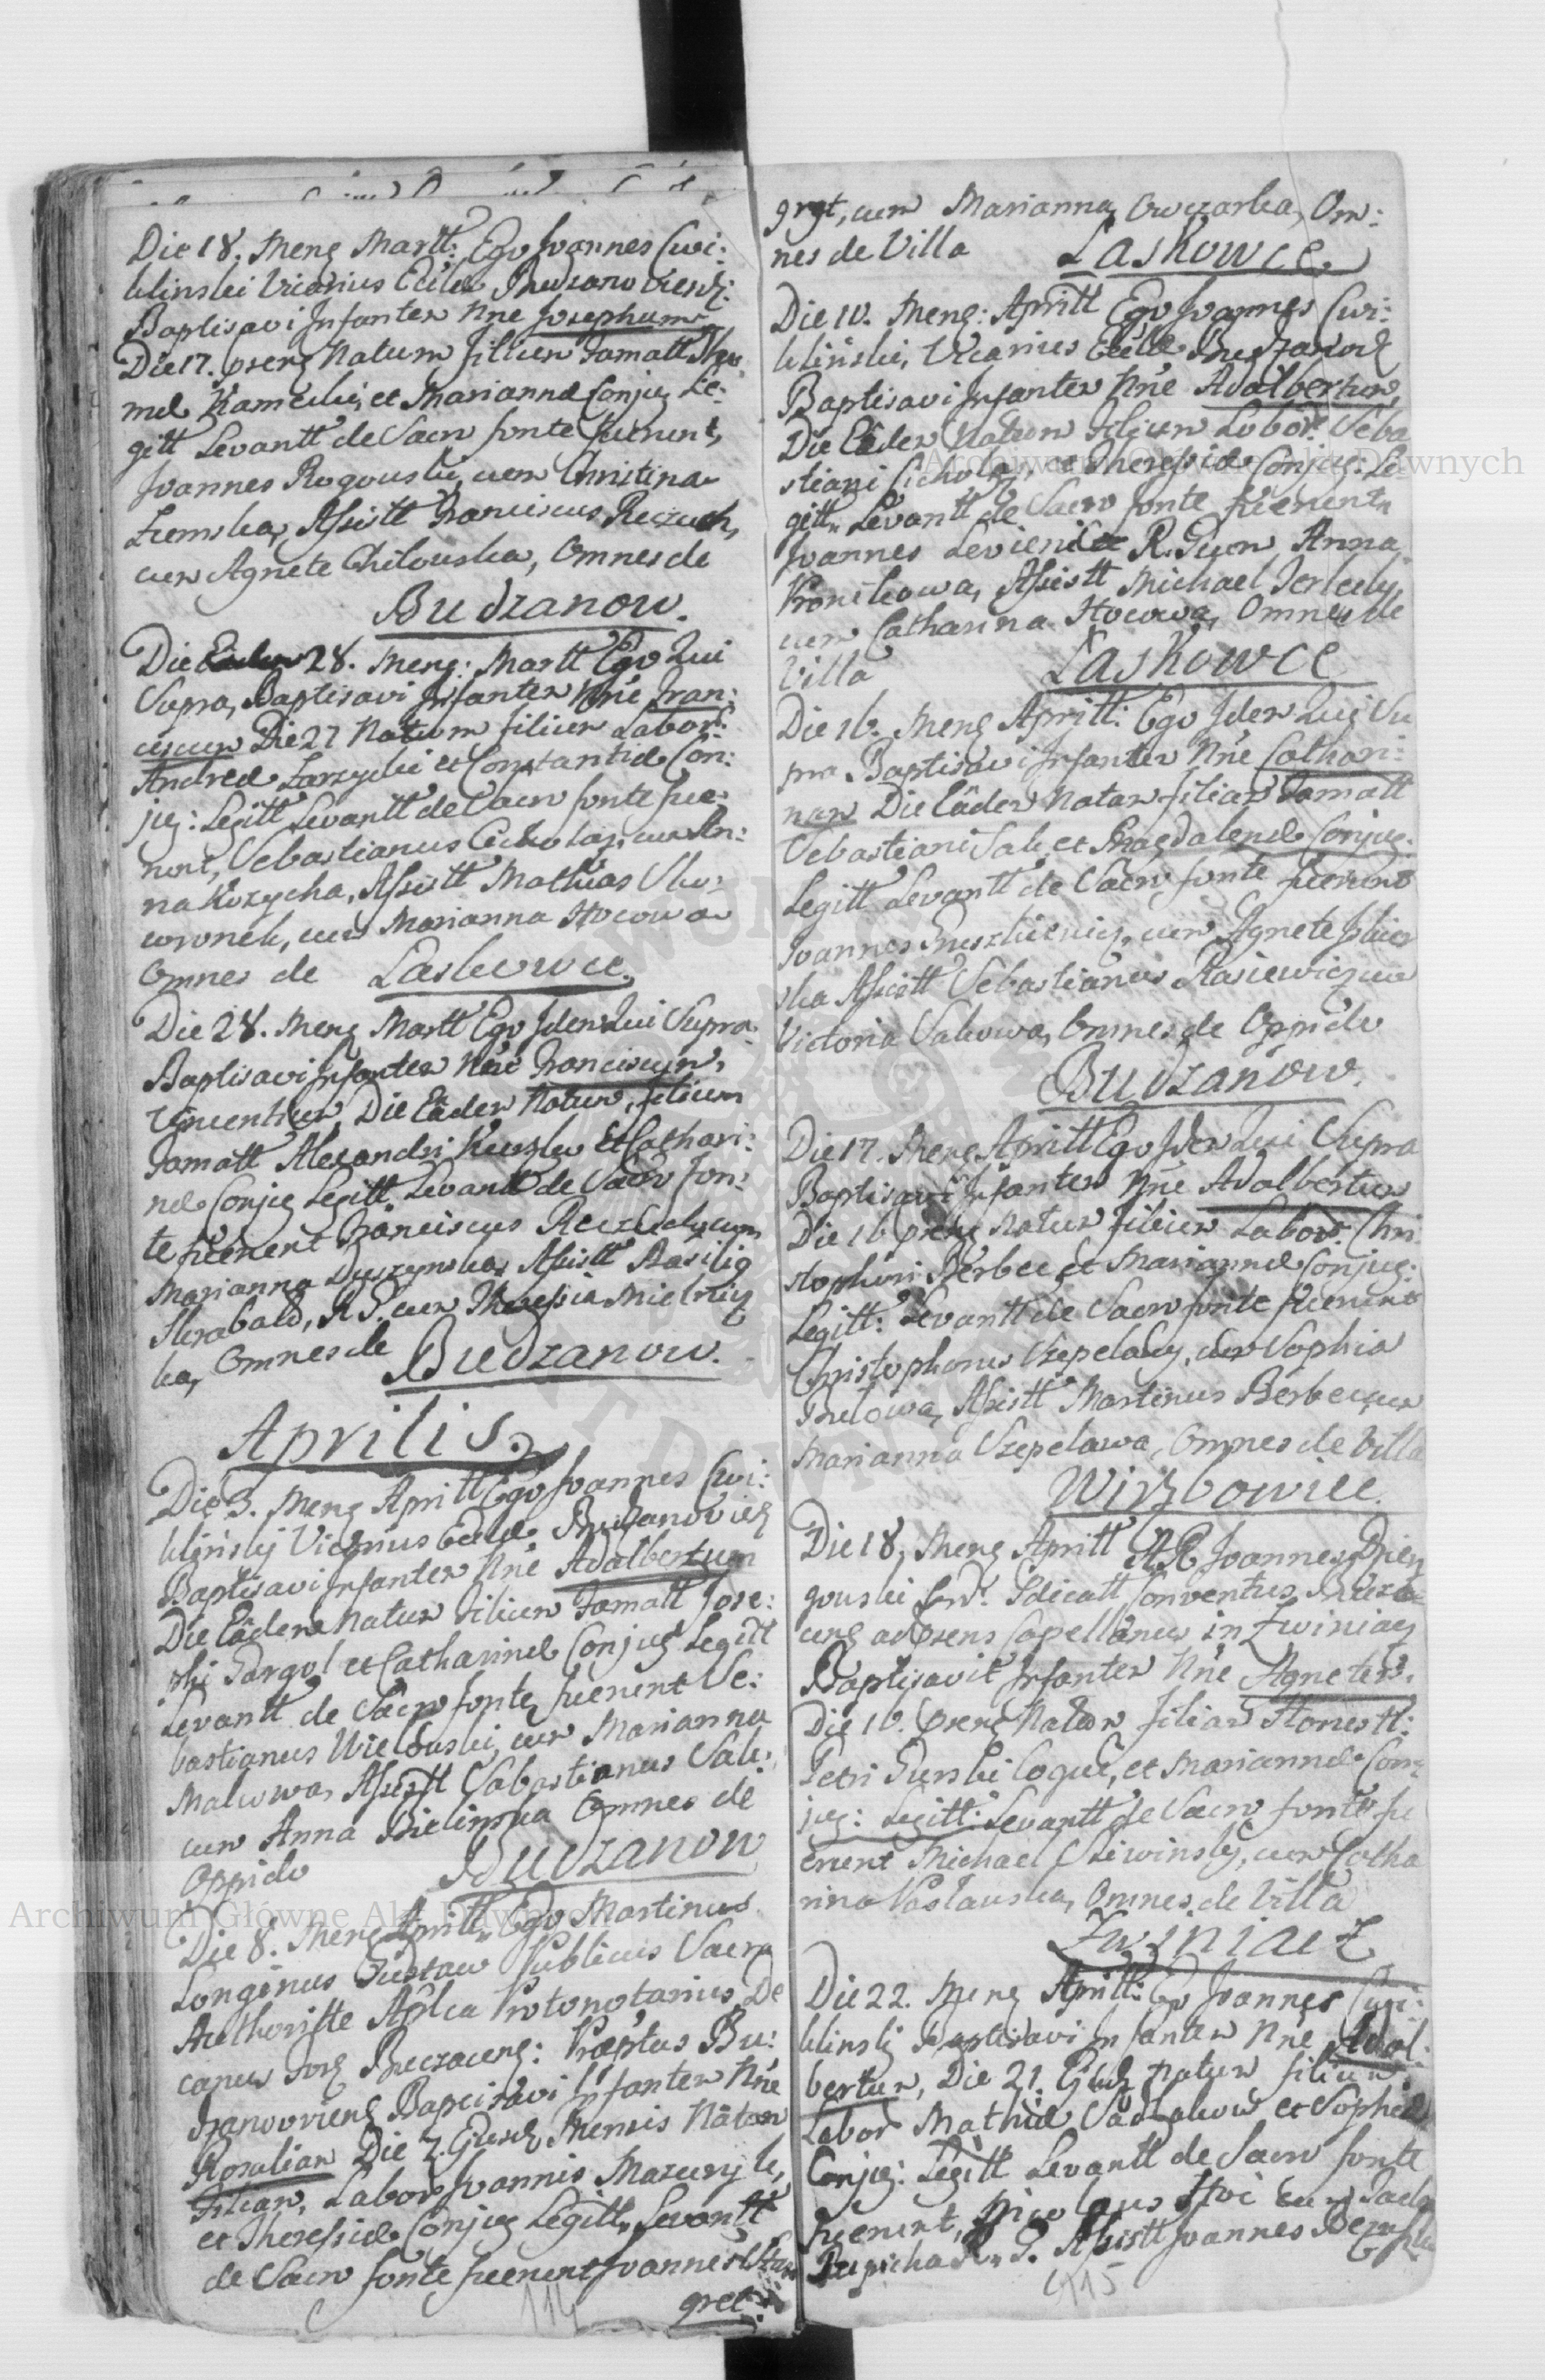 Die 18. Mens Martt: Ego Joannes Cwi:
klinski Vicarius Ecclae Budzanoviens:
Baptisavi Infantem Nne Josephum
Die 17. praens Natum filium Famatt
mae Kamecki, et Marianna Conjug Le:
gitt Levantt de Sacro fonte fuerunt,
Joannes Rogouski, cum Christina
Ziemska, Assistt Franciscus Reczuch,
cum Agnete Chilouska, Omnes de
Budzanow.
Die 28. Mens: Martt Ego Qui
Supra, Baptisavi Infantem Nne Fran:
ciscum Die 27 Natum filium Labor:
Andreae Zarzycki et Constantiae Con:
jug: Legitt Levantt de Sacro fonte fue:
runt, Sebastianus Cicholaz, cum An:
na Kozycha, Assistt Mathias Sko:
wronek, cum Marianna Hocowa
Omnes de Laskowce.
Die 28. Mens Martt Ego Idem Qui Supra
Baptisavi Infantem Nne Franciscum,
Vincentium, Die Eadem Natum, filium
Famatt Alexandri Kuszlu Et Cathari:
nae Conjug Legitt Levantt de Sacro fon:
te fuerunt Franciscus Reczuch, cum
Marianna Duszynska, Assistt Basilig
Herabald, R. G. cum Theressia Mielnic
ka, Omnes de Budzanow.
Aprilis.
Die 3. Mens Aprill Ego Joannes Cwi:
klinskj Vicarius Ecclae Budzanoviens
Baptisavi Infantem Nne Adalbertum
Die Eadem Natum filium Famatt Jose:
phi Gargol et Catharinae Conjug Legitt
Levantt de Sacro fonte, fuerunt Se:
bastianus Wielouski, cum Marianna
Malcowa, Assistt Sabastianus Sak,
cum Anna Bielinska Omnes de
Oppido Budzanow
Die 8. Mens Aprill, Ego Martinus
Longinus Publicus Sacra
Authoritte Aplca Protonotarius, De
canus For Buczacens: Praeptus Bu:
dzanoviens Baptisavi Infantem Nne
Rosaliam Die 7. Ejusd Mensis Natam
Filiam, Labor Joannis Mazuryk,
et Theressiae Conjug Legitt, Levantt
de Sacro fonte fuerunt Joannes Stan
gret
114
grgt, cum Marianna Owczarka, Om:
nes de Villa Laskowce.
Die 10. Mens: Aprill Ego Joannes Cwi:
klinski, Vicarius Ecclae Budzanov
Baptisavi Infantem Nne Adalbertum,
Die Eadem Natum Filium Labor: Seba
stiani Cicholaz, et Theressiae Conjug: Le:
gitt, Levantt de Sacro fonte fuerunt
Joannes R. Gum, Anna
Kronikowa, Assistt Michael Jerleckj
cum Catharina Hocowa, Omnes de
Villa Laskowce
Die 16. Mens Aprill: Ego Idem Qui Su
pra Baptisavi Infantem Nne Cathari:
nam Die Eadem Natam filiam Famatt
Sebastiani Sak, et Magdalenae Conjug:
Legitt Levantt de Sacro fonte fuerunt
Joannes Gruszkiewicz, cum Agnete
ska Assistt Sebastianus Stasiewicz cum
Victoria Sakowa, Omnes de Oppido
Budzanow.
Die 17. Mens Aprill Ego Idem Qui Supra
Baptisavi Infantem Nne Adalbertum
Die 16 praens Natum filium Labor: Chri
stophori Berbec et Mariannae Conjug:
Legitt: Levantt de Sacro fonte fuerunt
Christophorus Szepelawy, cum Sophia
Assistt Martinus Berbec, cum
Marianna Szepelawa, Omnes de Villa
Wirzbowiec.
Die 18, Mens Aprill A. R. Joannes Dzien
gouski Conventus Bucza
cens adprens Capellanus in Zwiniacz
Baptisavit Infantem Nne Agnetem.
Die 16. praens Natam filiam Honestt:
Petri Gurski Coqui, et Mariannae Con:
jug: Legitt: Levantt de Sacro fonte fu
erunt Michael Sliwinskj, cum Catha
rina Vaslauska, Omnes de Villa
Zwiniacz
Die 22. Mens Aprill: Ego Joannes Cwi:
klinskj Baptisavi Infantem Nne Adal:
bertum, Die 21. Ejusd Natum filium
Labor Mathiae Sadlakow et Sophiae
Conjug: Legitt Levantt de Sacro fonte
fuerunt, Nicolaus Hoc
R. G. Assistt Joannes
115
Archiwum Główne Akt Dawnych
Archiwum Główne Akt Dawnych